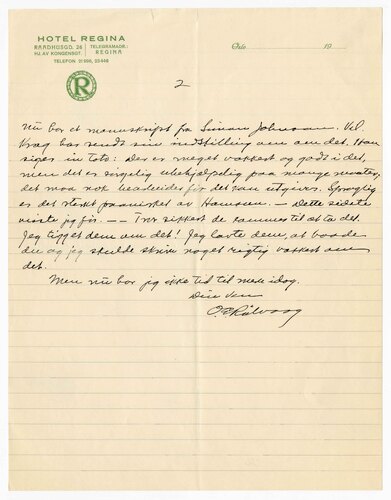 HOTEL REGINA
RAADHUSGD. 26
HJ. AV KONGENSGT.
TELEGRAMADR.:
REGINA
TELEFON 21 596, 23 448
R
Oslo 19
2
Nu bor et manuskript fra Simon Johnson. Vil.
Krag har sendt sin indstilling om om det. Han
siger in toto: Der er meget vakkert og godt i det,
men det er sørgelig ubehjælpelig paa mange maater,
det maa nok bearbeides før det kan utgives. Sproglig
er det sterkt paavirket av Hamsun. — Dette sidste
visste jeg før. — — Tror sikkert de kommer til at ta det.
Jeg tigget dem om det! Jeg lovte dem, at baade
du og jeg skulde skrive noget rigtig vakkert om
det.
Men nu har jeg ikke tid til mere idag.
Din ven
O. E. Rölvaag